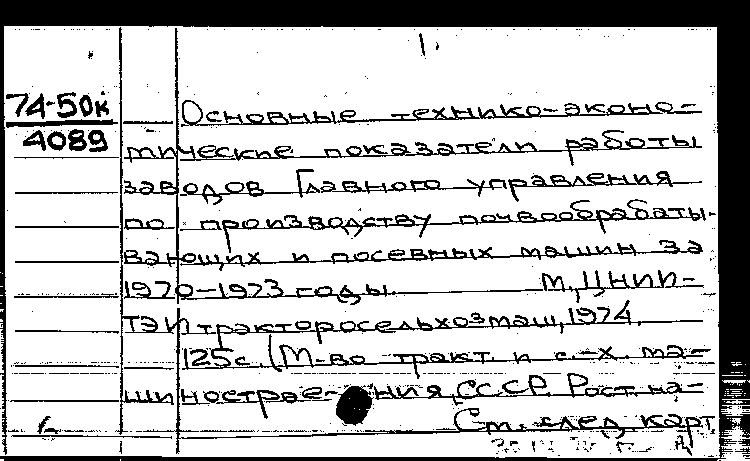 1.
74-50к
4089
Основные технико-эконо-
мические показатели работы
заводов Главного управления
по производству почвообрабаты-
вающих и посевных машин за
1970-1973 годы. М., ЦНИИ-
ТЭИтракторосельхозмаш, 1974.
125с. (М-во тракт. и с.-х. ма-
шинострое- ния СССР. Рост. на-
См. след. карт.